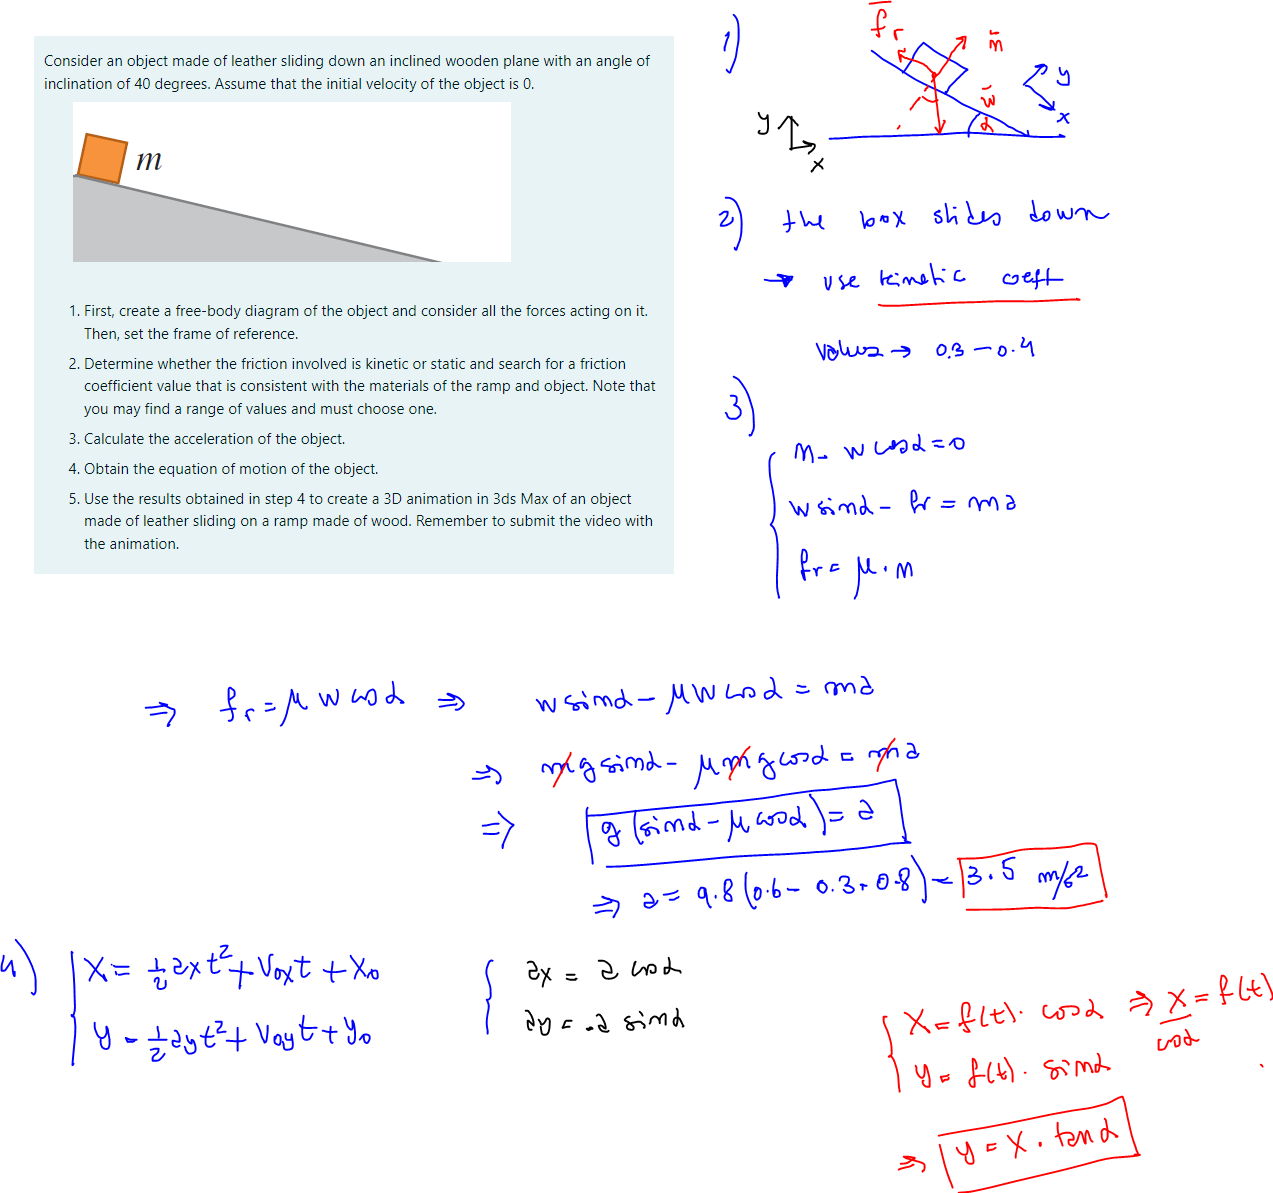 Consider an object made of leather sliding down an inclined wooden plane with an angle of
inclination of 40 degrees. Assume that the initial velocity of the object is 0.
m
1. First, create a free-body diagram of the object and consider all the forces acting on it.
Then, set the frame of reference.
2. Determine whether the friction involved is kinetic or static and search for a friction
coefficient value that is consistent with the materials of the ramp and object. Note that
you may find a range of values and must choose one.
3. Calculate the acceleration of the object.
4. Obtain the equation of motion of the object.
5. Use the results obtained in step 4 to create a 3D animation in 3ds Max of an object
made of leather sliding on a ramp made of wood. Remember to submit the video with
the animation.
1)
fr
n
w
α
y
x
y
x
2) the box slides down
→ use kinetic coeff
values → 0.3 – 0.4
3)
n - w cosα = 0
w sinα - fr = ma
fr = μ.n
⇒ fr = μ w cosα ⇒ w sinα - μ w cosα = ma
⇒ mg sinα - μ m g cosα = ma
⇒ g (sinα - μ cosα) = a
⇒ a = 9.8 (0.6 - 0.3 · 0.8) = 3.5 m/s²
4) x = ½ axt² + Voxt + Xo
y = ½ ayt² + Voyt + yo
ax = a cosα
ay = -a sinα
x = f(t). cosα ⇒ x/cosα = f(t)
y = f(t). sinα
⇒ y = x. tanα